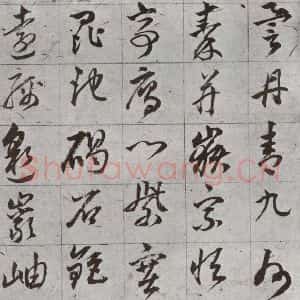 譽丹青九州
秦并嶽宗恒
亭雁門紫塞
昆池碣石鉅
遠綿邈巖岫
Shufawang.Cn